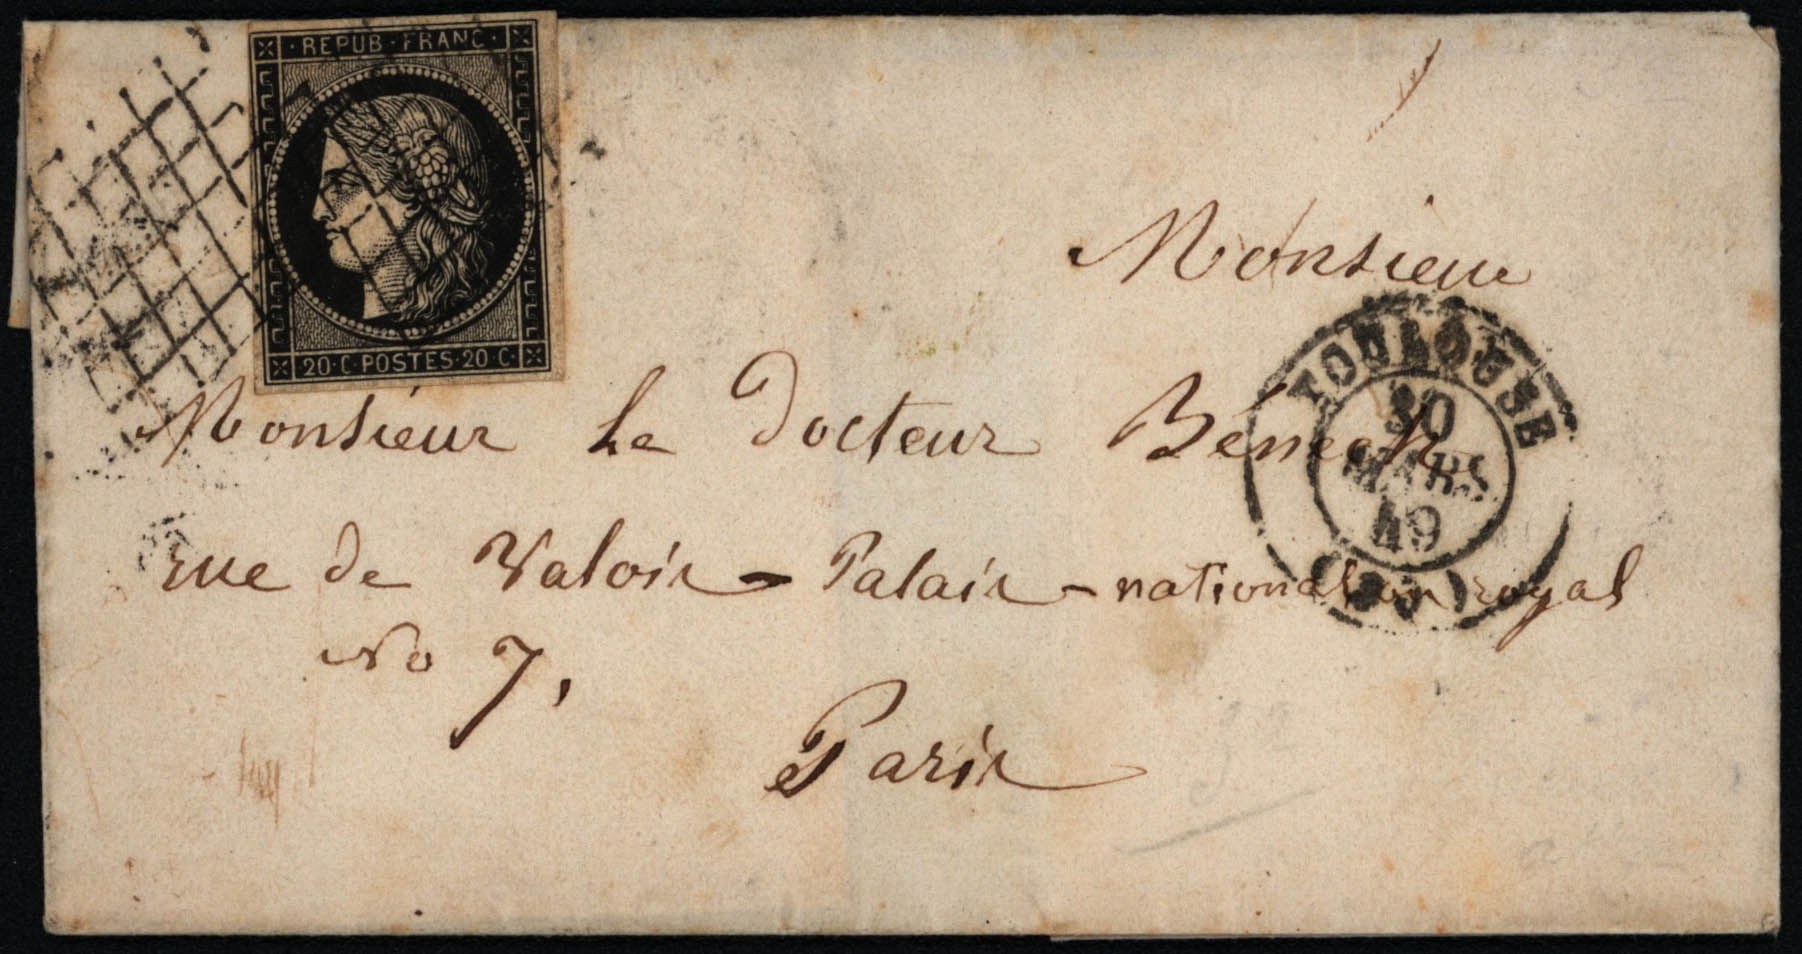 REPUB · FRANC ·
20 · C · POSTES · 20 C ·
Monsieur
TOULOUSE
30
MARS
49
Monsieur Le Docteur Bénech
rue de Valois - Palais - national ou royal
No 7,
Paris